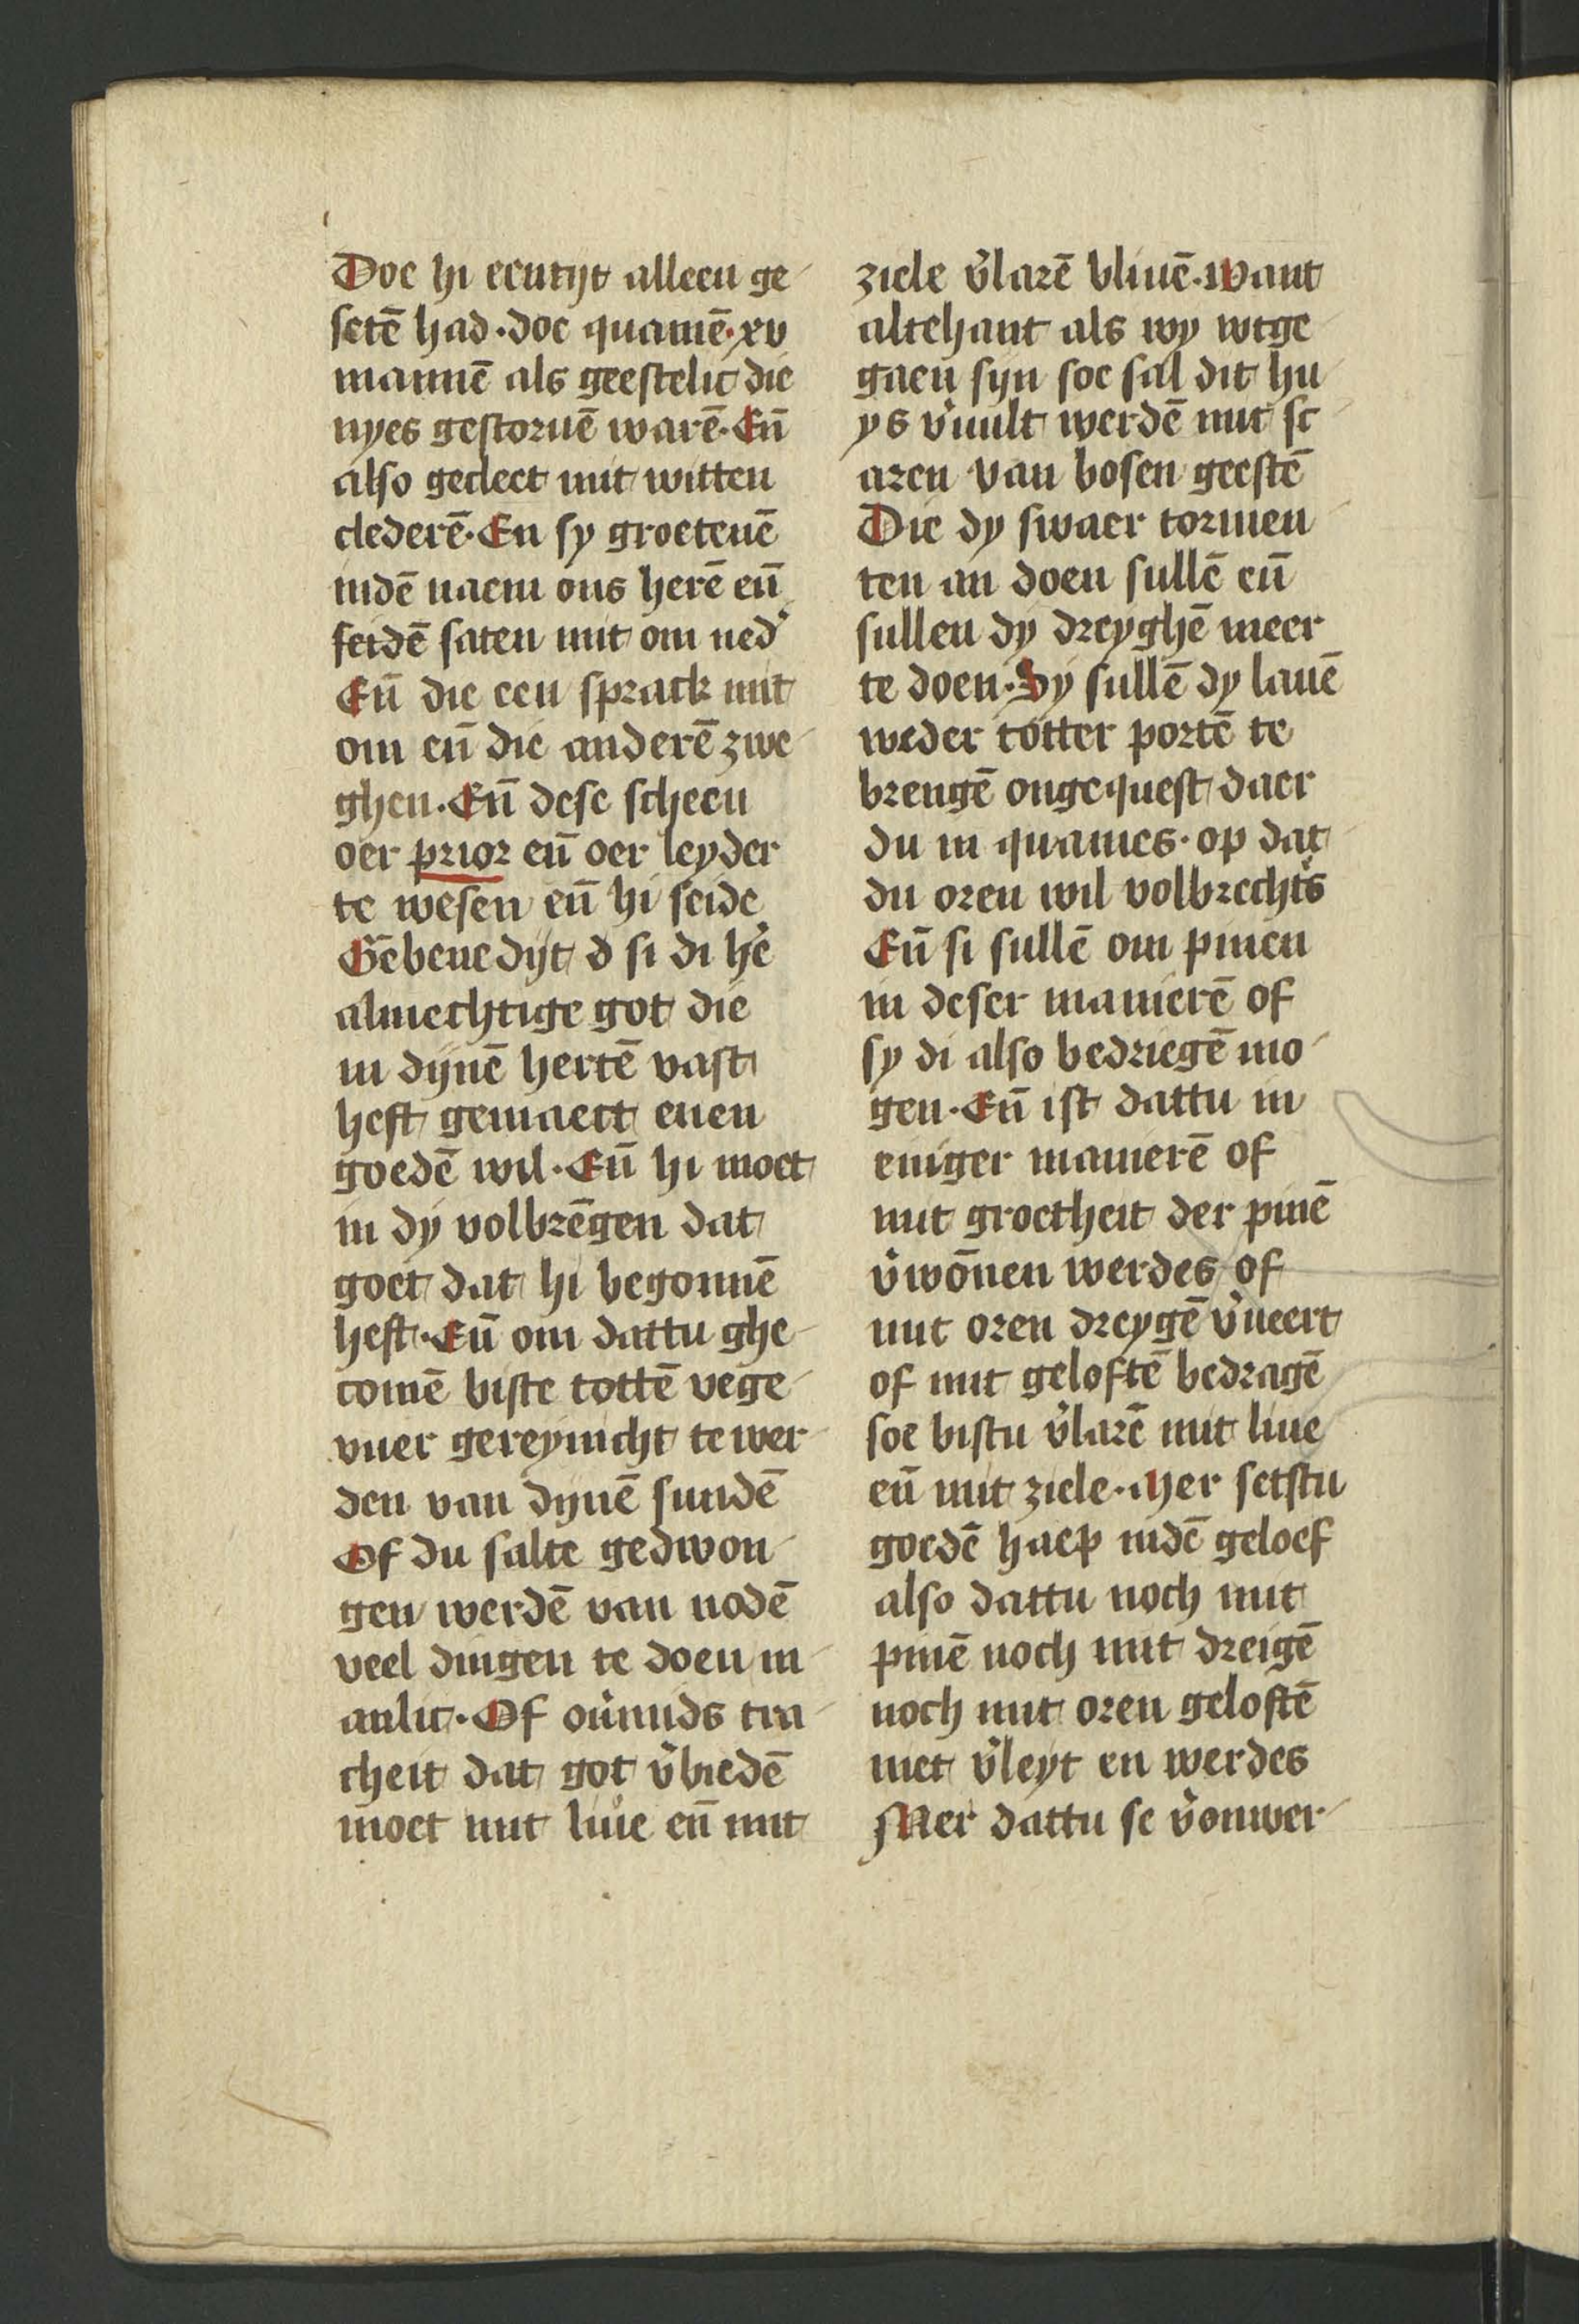 Doe hi eentijt alleen ge
setē had·doe quamē·xv
mannē als geestelic die
nyes gestoruē warē·Eñ
also gedect mit witten
clederē·En sy groetenē
indē naem ons herē eñ
setdē saten mit om ned᷎
Eñ die een sprack mit
om eñ die anderē zwe
ghen·Eñ dese scheen
oer prior eñ oer leyder
te wesen eñ hi seide
Gēbenedijt d si di he᷎
almechtige got die
in dijnē hertē vast
heft gemaect enen
goedē wil·Eñ hi moet
in dy volbrēgen dat
goet dat hi begonnē
heft·Eñ om dattu ghe
comē biste tottē vege
vuer gereynicht te wer
den van dijnē sundē
Of du salte gedwon
gen werdē van nodē
veel dingen te doen m
anlic·Of ou᷎mids tra
cheit dat got v᷎biedē
moet mit liue eñ mit
ziele v᷎larē bliuē·want
altehant als wy wtge
gaen sijn soe sal dit hu
ys v᷎uult werdē mit sc
aren van bosen geestē
Die dy swaer tormen
ten an doen sullē eñ
sullen dy dreyghē meer
te doen·Sy sullē dy lauē
weder totter portē te
brengē ongequest daer
du in quames·op dat
du oren wil volbrechts
Eñ si sullē om pinen
in deser manierē of
sy di also bedriegē mo
gen·Eñ ist dattu in
eniger manierē of
mit groetheit der pinē
v᷎wōnen werdes of
mit oren dreygē v᷎ueert
of mit geloftē bedragē
soe bistu v᷎larē mit liue
eñ mit ziele·Mer setstu
goedē haep indē geloef
also dattu noch mit
pinē noch mit dreigē
noch mit oren geloftē
niet v᷎leyt en werdes
Mer dattu se v᷎onwer